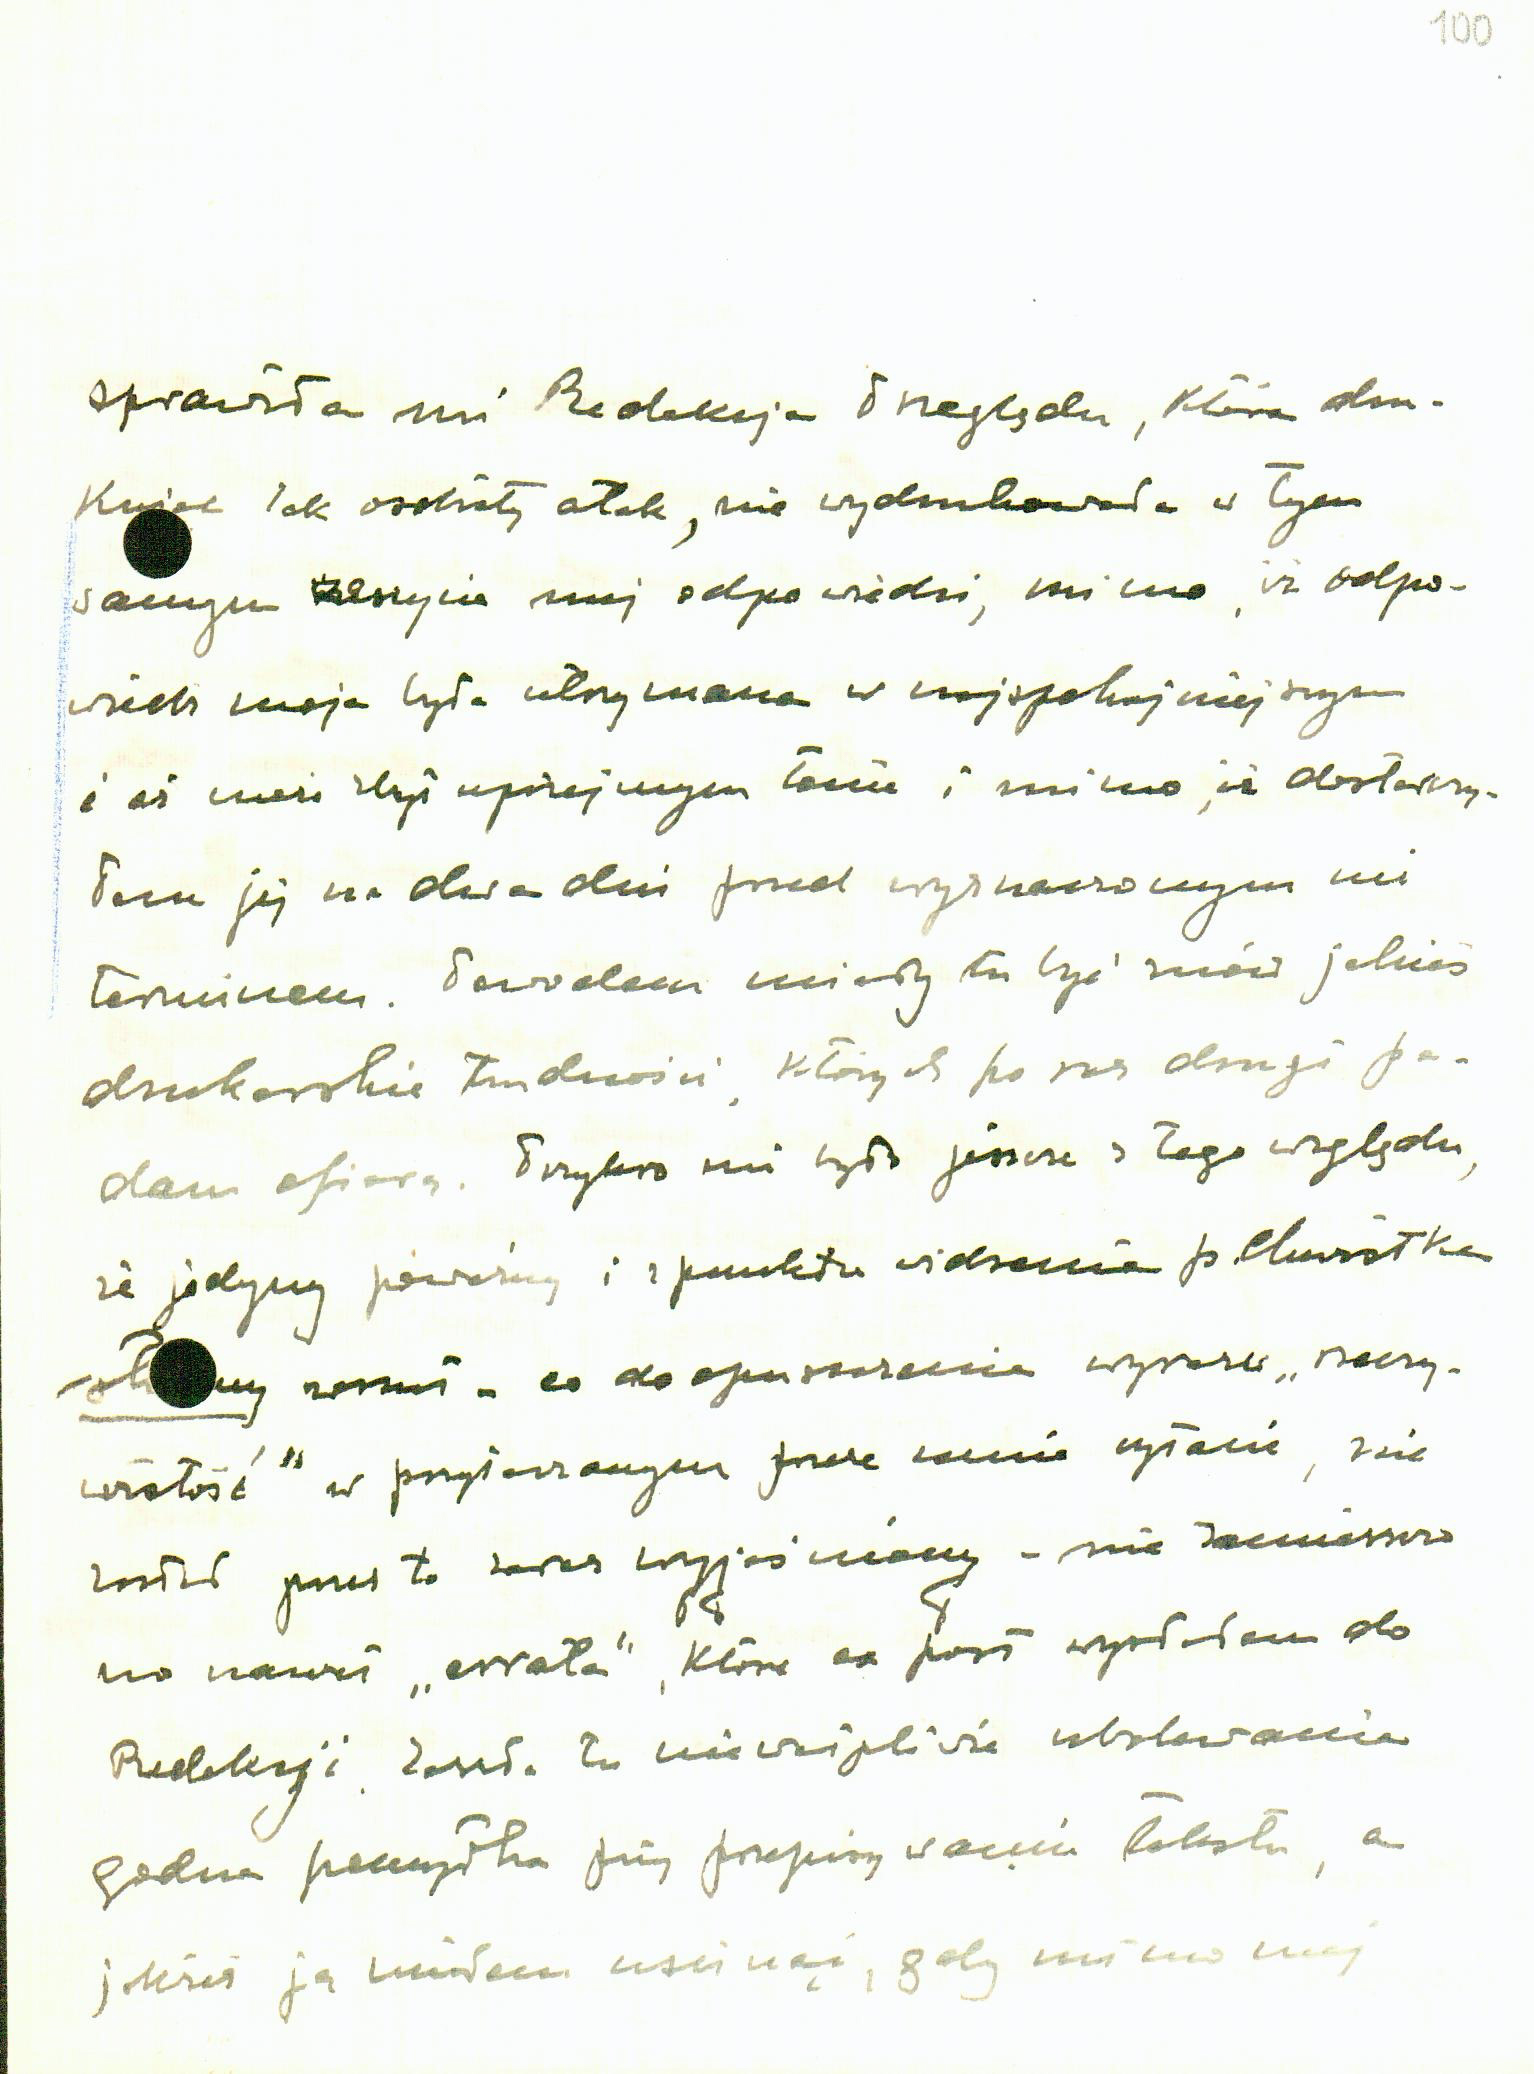 100
sprawiła mi Redakcja Przeglądu, która dru-
kując tak osobisty atak, nie wydrukowała w tym
samym zeszycie mej odpowiedzi, mimo, iż odpo-
wiedź moja była utrzymana w najspokojniejszym
i aż nazbyt uprzejmym tonie i mimo, iż dostarczy-
łem jej na dwa dni przed wyznaczonym mi
terminem. Powodem miały tu być znów jakieś
drukarskie trudności, których po raz drugi pa-
dam ofiarą. Przykro mi było jeszcze z tego względu,
że jedyny poważny i z punktu widzenia p. Chwistka
zarzut - co do opuszczenia wyrazu „rzeczy-
wistość" w przytaczanym przeze mnie cytacie, nie
został przez to zaraz wyjaśniony - nie zamieszczo
no nawet „errata", które ex post wysłałem do
Redakcji. Zaszła tu niewątpliwie ubolewania
godna pomyłka przy przepisywaniu tekstu, a
jakżeż ja miałem usunąć, gdy mimo mej